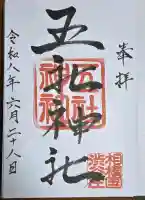 奉拝
五社神社
五社
神社
相模國
令和八年六月二十八日